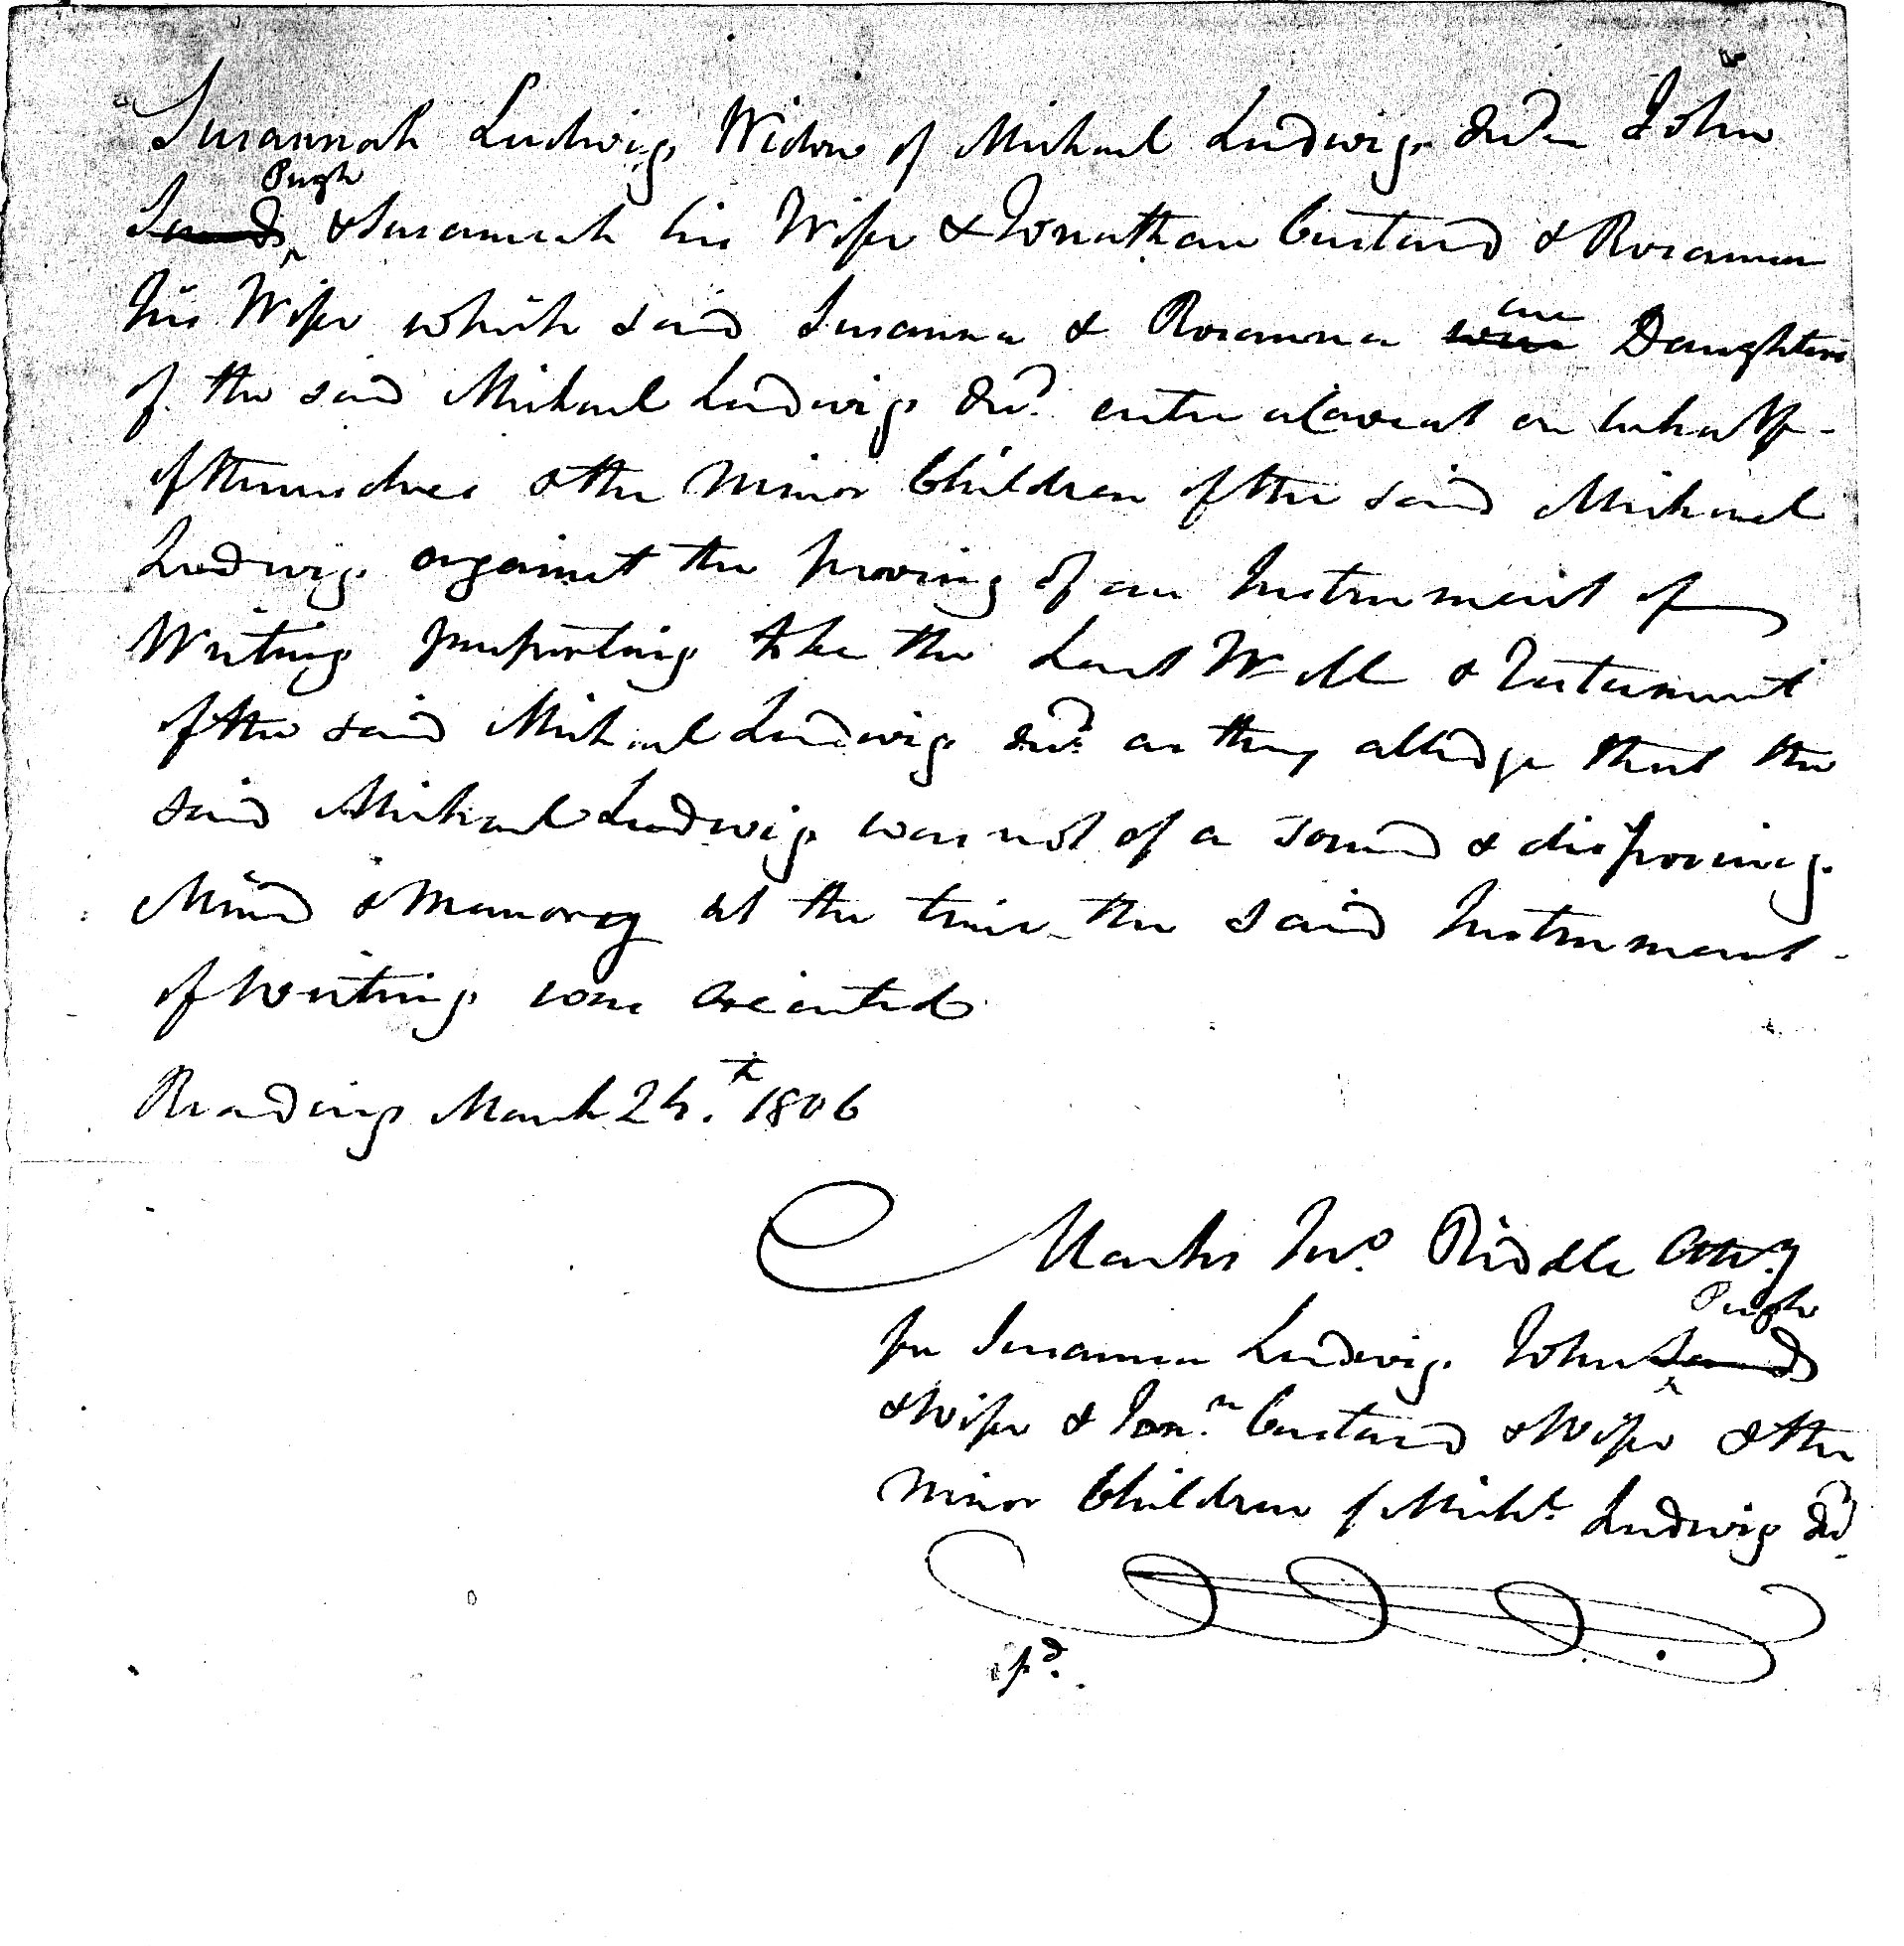 Susannah Ludwig Widow of Michael Ludwig decd John
Pugh
& Susannah his Wife & Jonathan Custard & Rosanna
his Wife which said Susanna & Rosanna
are
were Daughters
of the said Michael Ludwig decd. enter a Caveat on behalf
of themselves & the minor Children of the said Michael
Ludwig against the proving of an Instrument of
Writing purporting to be the Last Will & Testament
of the said Michael Ludwig decd. as they alledge that the
said Michael Ludwig was not of a sound & disposing
Mind & Memory at the time the said Instrument
of Writing was executed
Reading March 24.th 1806
Marks Jno. Biddle Atty
Pugh
for Susanna Ludwig. John
& Wife & Jonn. Custard & Wife & the
minor Children of Michl. Ludwig decd.
pd.